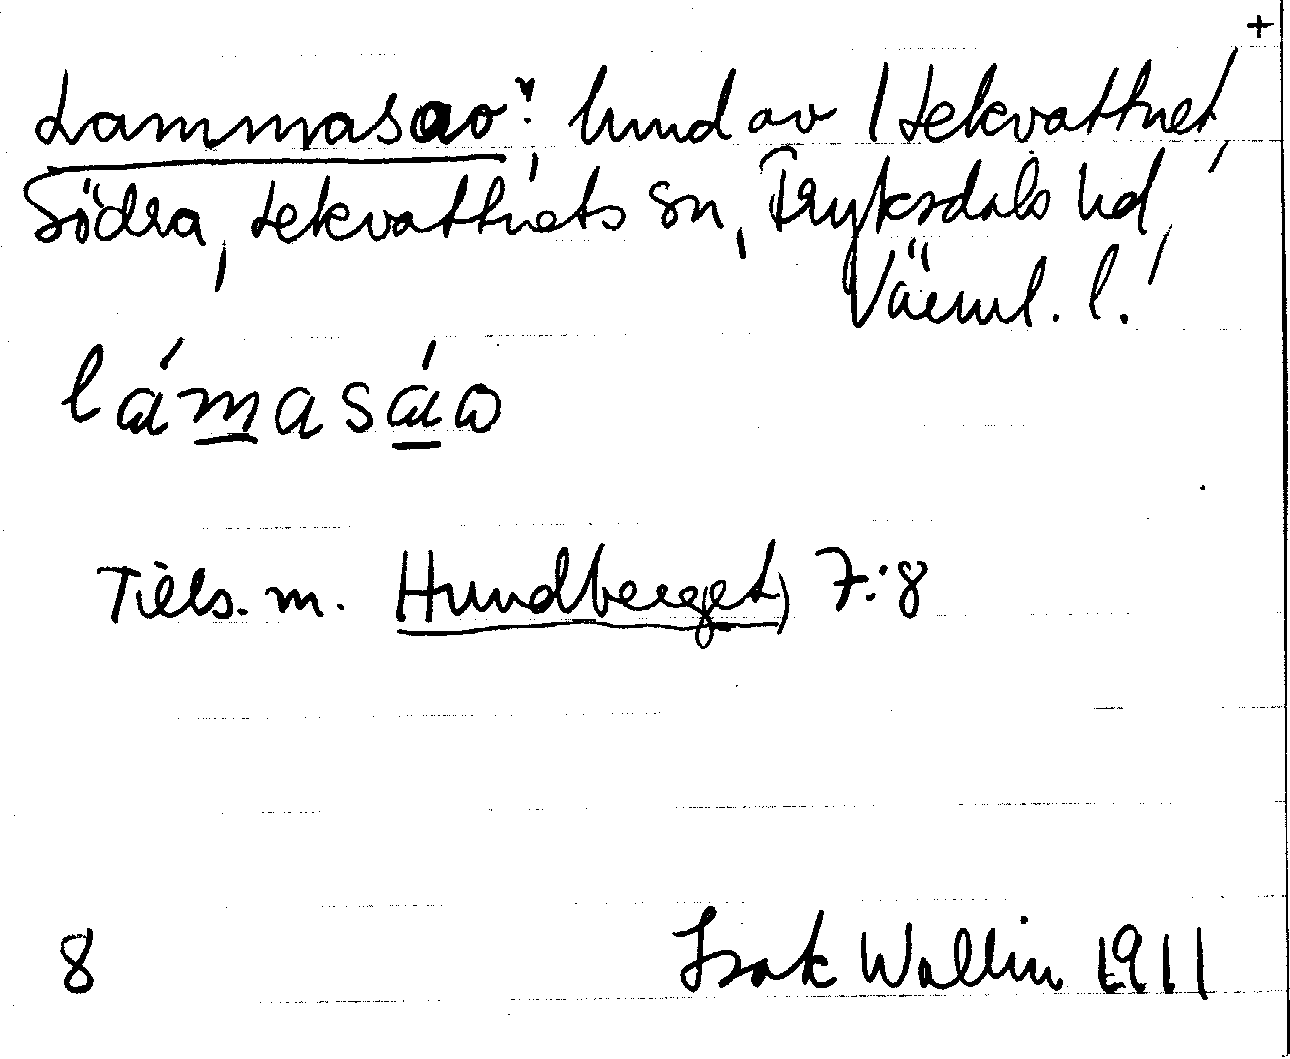 +
Lammasao: hmd av 1 Lekvattnet,
Södra, Lekvattnets sn, Fryksdals hd,
Värml. l.
lámasáo
Tills. m. Hundberget, 7:8
8 Isak Wallin 1911